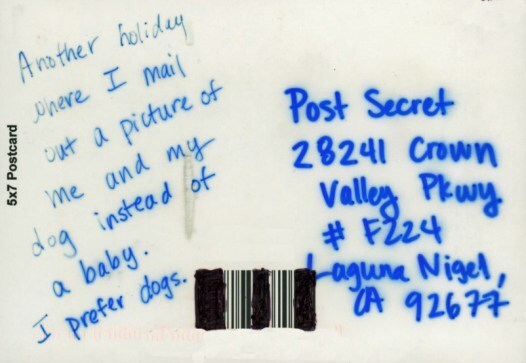 5x7 Postcard
Another holiday
where I mail
out a picture of
me and my
dog instead of
a baby.
I prefer dogs.
Post Secret
28241 Crown
Valley Pkwy.
# F224
Laguna Nigel,
CA 92677